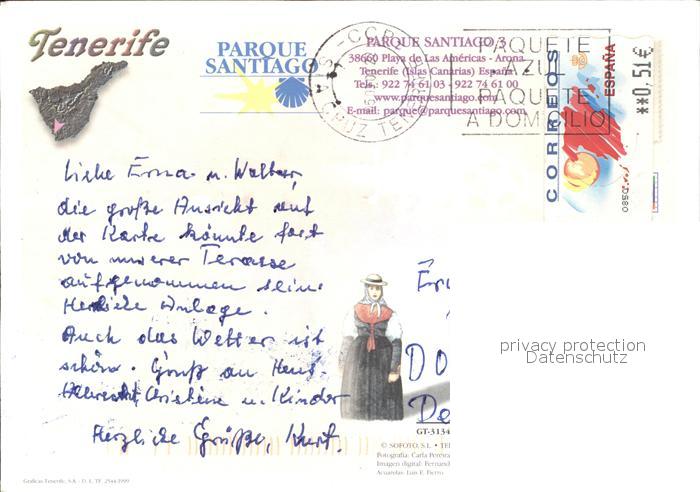 Tenerife
PARQUE SANTIAGO
PARQUE SANTIAGO 3
38660 Playa de Las Américas - Arona
Tenerife (Islas Canarias) España
Tels.: 922 74 61 03 - 922 74 61 00
www.parquesantiago.com
E-mail: parque@parquesantiago.com
PAQUETE
AZUL
PAQUETE
A DOMICILIO
CORREOS
ESPAÑA
**0,51€
Liebe Erna u. Walter,
die große Ansicht auf
der Karte könnte fast
von unserer Terasse
aufgenommen sein.
Herrliche Anlage.
Auch das Wetter ist
schön. Gruß an Hans-
Albrecht Christine u. Kinder
Herzliche Grüße, Kurt.
Er
DO
De
privacy protection
Datenschutz
GT-3134
© SOFOTO, S.L. • TE
Fotografía: Carla Pereira
Imagen digital: Fernand
Acuarelas: Luis F. Fierro
Gráficas Tenerife, S.A. - D. L. TF. 2544-1999